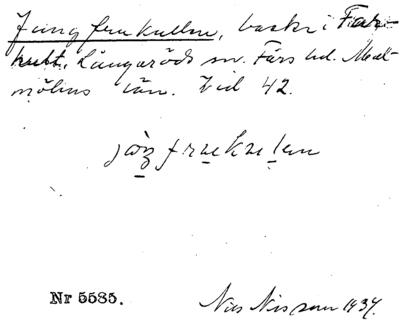 Jungfrukullen, backe i Far-
hult. Långaröds sn. Färs hd. Mal-
möhus län. Vid 42.
Nr 5585. Nils Nilsson 1934.